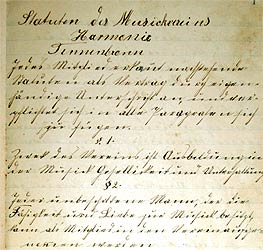 Statuten des Musickvereins
Harmonie
Tennenbronn
Jedes Mitglied erkennt nachstehende
Statuten als Vertrag durch eigen-
händige Unterschrift an und ver-
pflichtet sich in alle Paragrafen sich
zu fügen.
§ 1.
Zweck des Vereins ist Ausbildung in
der Musick Geselligkeit und Unterhaltung
§ 2.
Jeder unbescholtene Mann, der die
Fähigkeit und Liebe zur Musick besitzt,
kann als Mitglied in den Verein aufge-
nommen werden